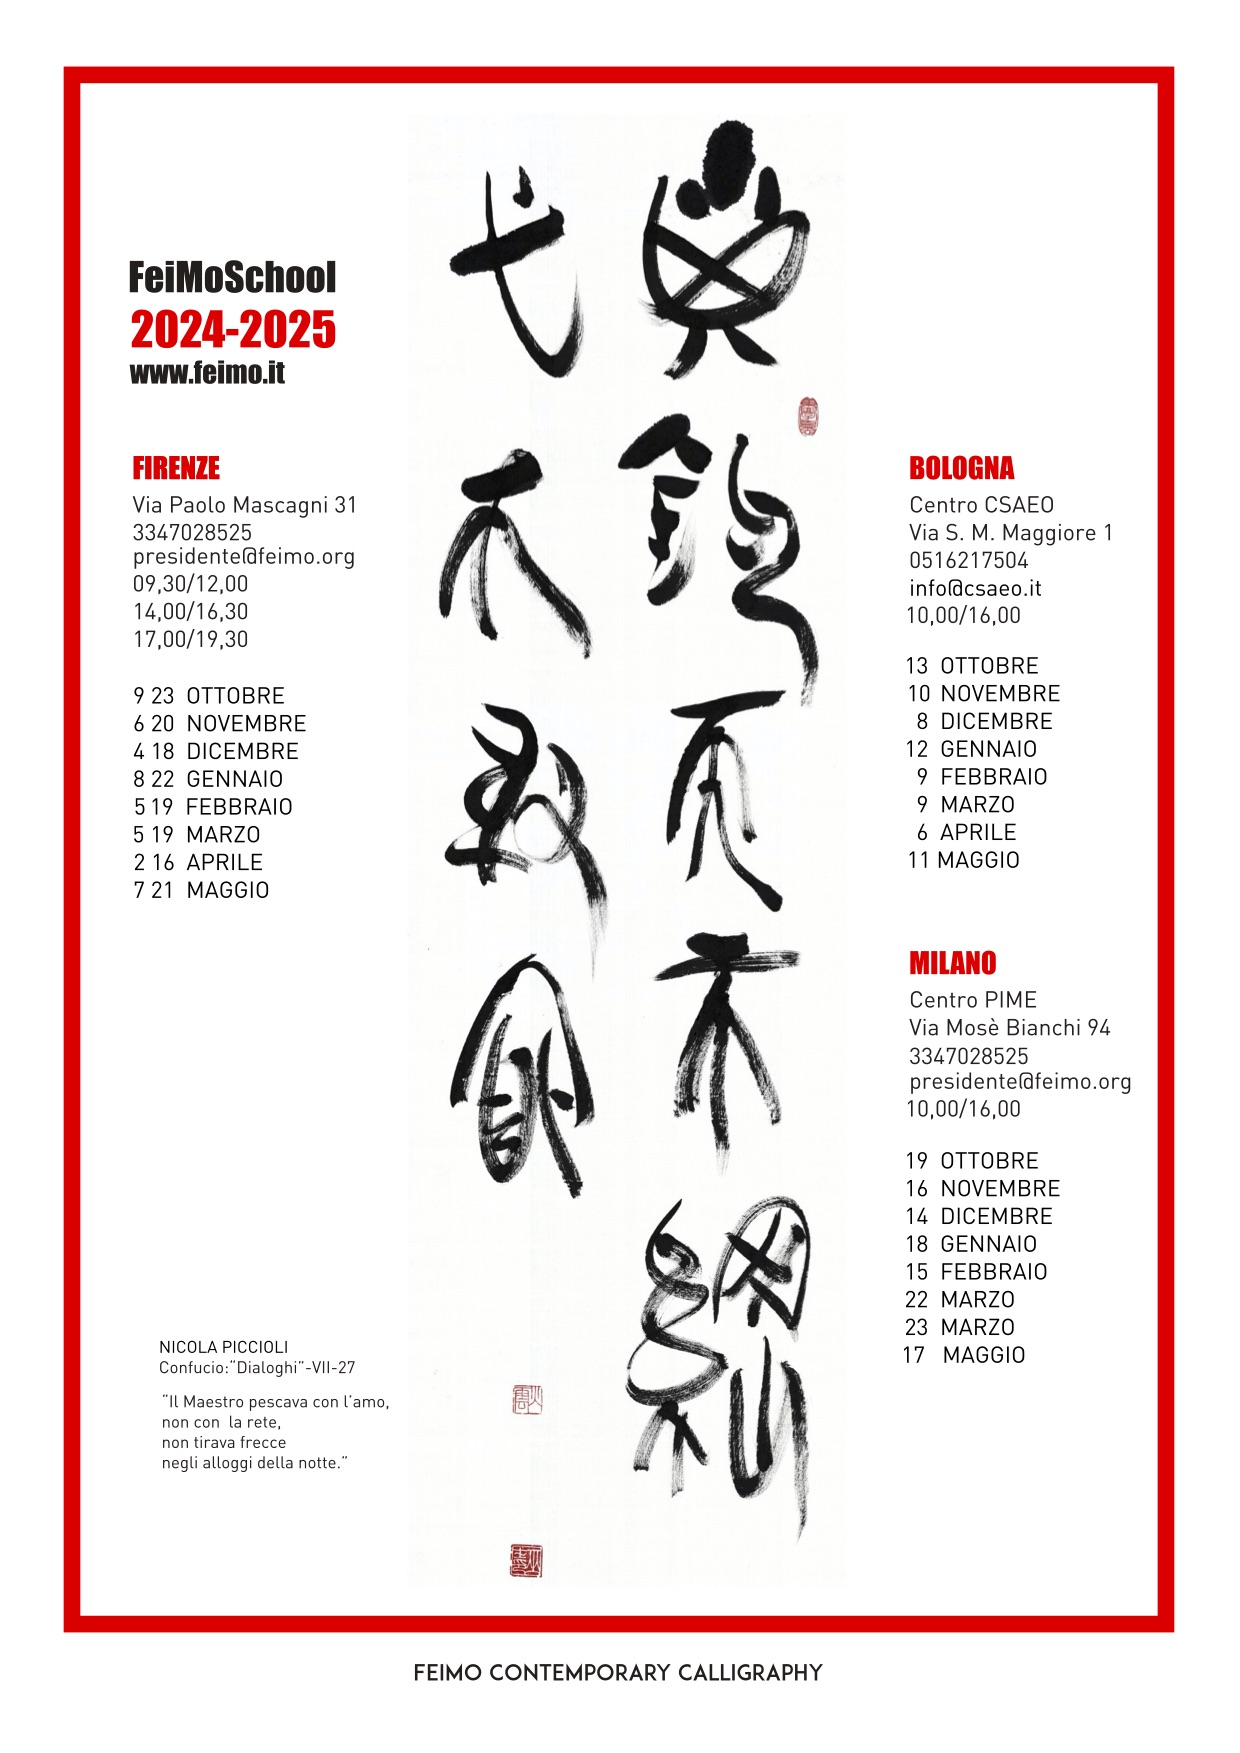 FeiMoSchool
2024-2025
www.feimo.it
FIRENZE
Via Paolo Mascagni 31
3347028525
presidente@feimo.org
09,30/12,00
14,00/16,30
17,00/19,30
9 23 OTTOBRE
6 20 NOVEMBRE
4 18 DICEMBRE
8 22 GENNAIO
5 19 FEBBRAIO
5 19 MARZO
2 16 APRILE
7 21 MAGGIO
NICOLA PICCIOLI
Confucio:“Dialoghi”-VII-27
“Il Maestro pescava con l’amo,
non con la rete,
non tirava frecce
negli alloggi della notte.”
子釣而不綱
弋不射宿
BOLOGNA
Centro CSAEO
Via S. M. Maggiore 1
0516217504
info@csaeo.it
10,00/16,00
13 OTTOBRE
10 NOVEMBRE
8 DICEMBRE
12 GENNAIO
9 FEBBRAIO
9 MARZO
6 APRILE
11 MAGGIO
MILANO
Centro PIME
Via Mosè Bianchi 94
3347028525
presidente@feimo.org
10,00/16,00
19 OTTOBRE
16 NOVEMBRE
14 DICEMBRE
18 GENNAIO
15 FEBBRAIO
22 MARZO
23 MARZO
17 MAGGIO
FEIMO CONTEMPORARY CALLIGRAPHY